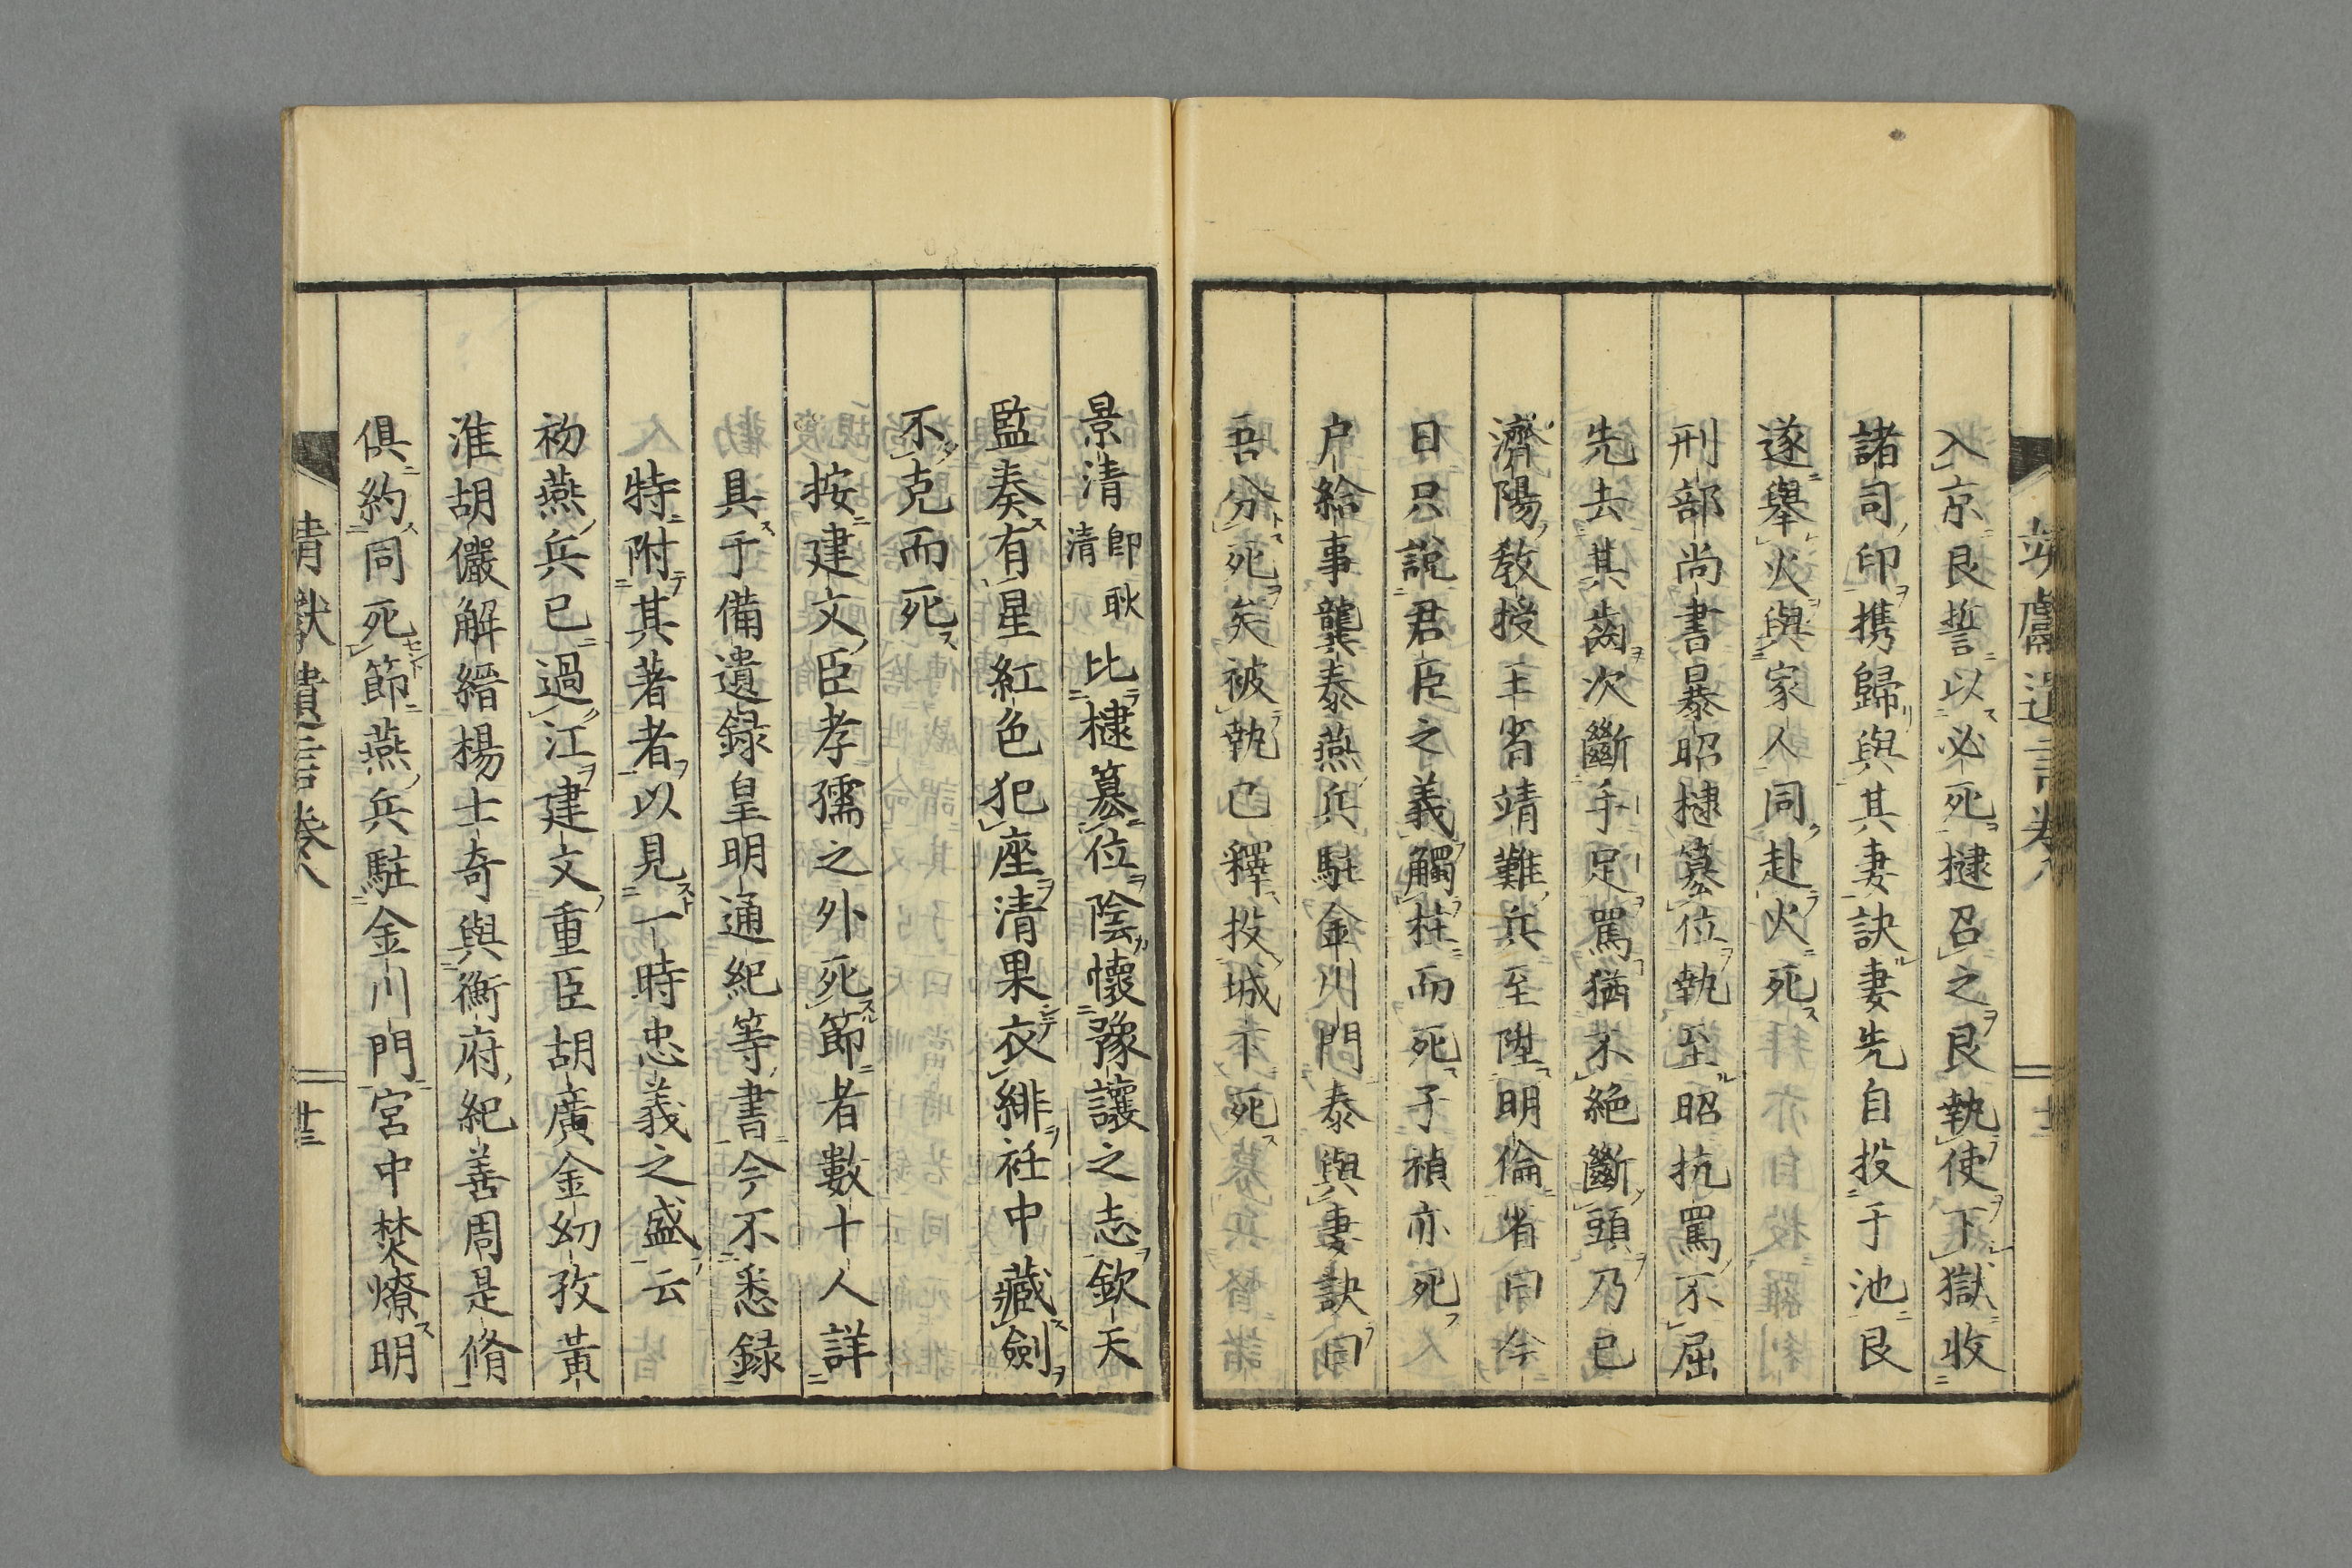 入京良誓以必死棣召之良執使下獄收
諸司印携歸與其妻訣妻先自投于池良
遂舉火與家人同赴火死
刑部尚書暴昭棣簒位執至昭抗罵不屈
先去其齒次斷手足罵猶不絕斷頭乃已
濟陽教授王省靖難兵至陞明倫省曰今
日只說君臣之義觸柱而死子禎亦死
户給事龔泰燕兵駐金川門泰與妻訣曰
吾分死矣被執已釋投城下死
景清即耿清比棣簒位陰懷豫讓之志欽天
監奏有星紅色犯座清果衣緋衽中藏劍
不克而死
按建文臣孝孺之外死節者數十人詳
具于備遺録皇明通紀等書今不悉録
特附其著者以見一時忠義之盛云
初燕兵已過江建文重臣胡廣金幼孜黃
淮胡儼解縉楊士奇與衡府紀善周是脩
俱約同死節燕兵駐金川門宮中焚燎明
靖獻遺言卷八
廿三